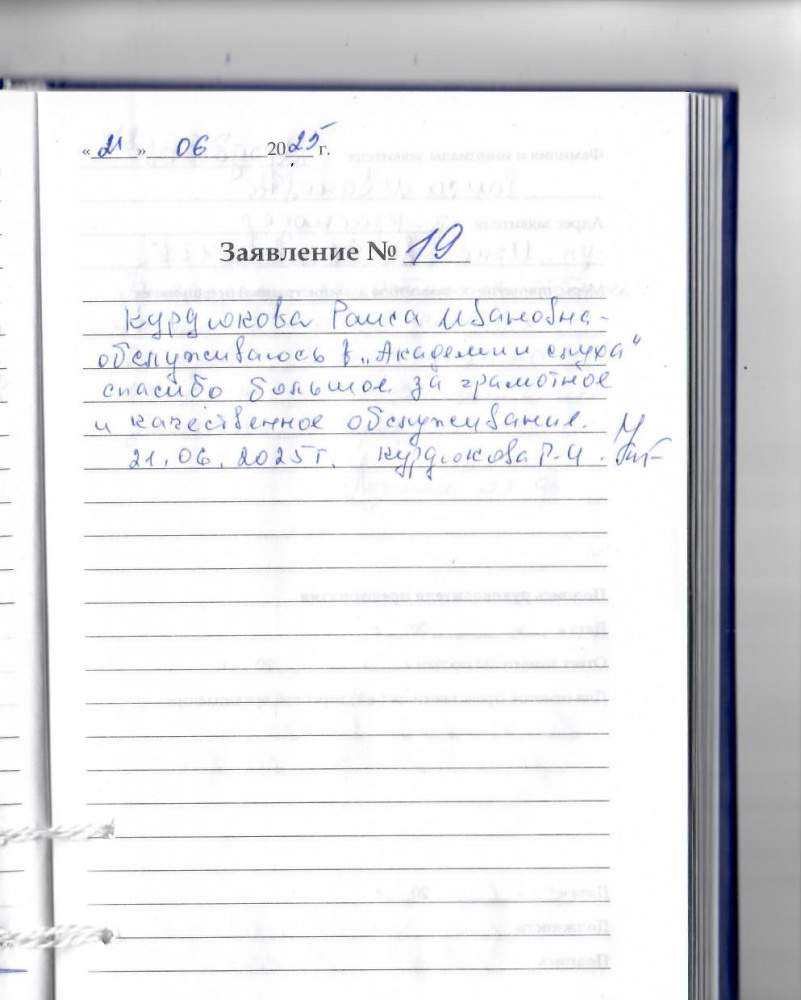 «21» 06 2025 г.
Заявление № 19
Курдюкова Раиса Ивановна -
обслуживаюсь в „Академии слуха"
спасибо большое за грамотное
и качественное обслуживание.
21.06.2025 г. Курдюкова Р.И.